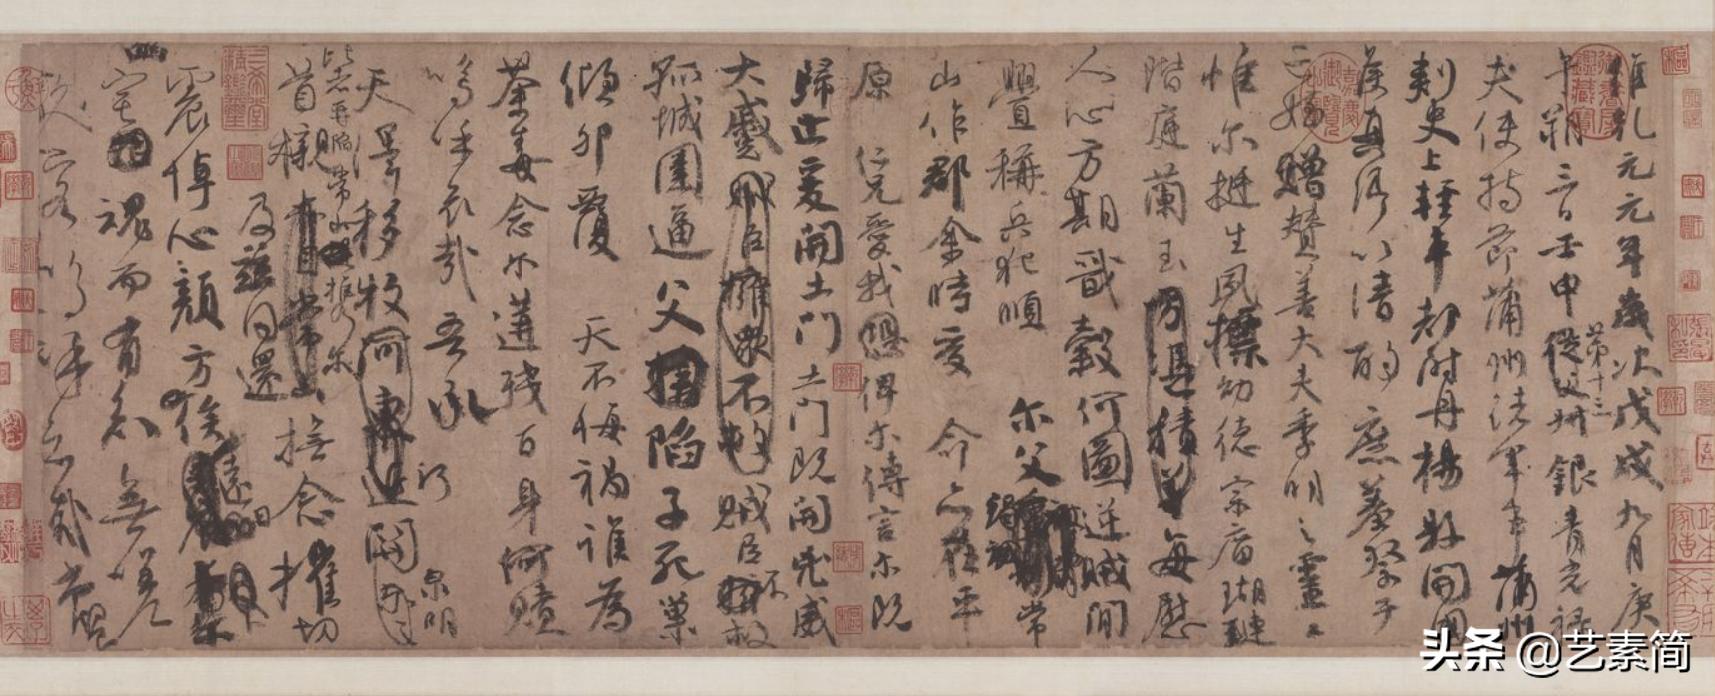 維乾元元年歲次戊戌九月庚
午朔三日壬申第十三從父銀青光祿
夫使持節蒲州諸軍事蒲州
刺史上輕車都尉丹楊縣開國
侯真卿以清酌庶羞祭于
亡姪贈贊善大夫季明之靈曰
惟爾挺生夙標幼德宗廟瑚璉
階庭蘭玉每慰
人心方期戩穀何圖逆賊間
釁稱兵犯順爾父常
山作郡余時受命亦在平
原仁兄愛我俾爾傳言爾既
歸止爰開土門土門既開兇威
大蹙賊臣不救
孤城圍逼父陷子死巢
傾卵覆天不悔禍誰為
荼毒念爾遘殘百身何贖
嗚呼哀哉吾承
天澤移牧河關泉明
比者再陷常山攜爾
首櫬及茲同還撫念摧切
震悼心顏方俟遠日
卜爾幽宅魂而有知無嗟
久客嗚呼哀哉尚饗
头条 @艺素简